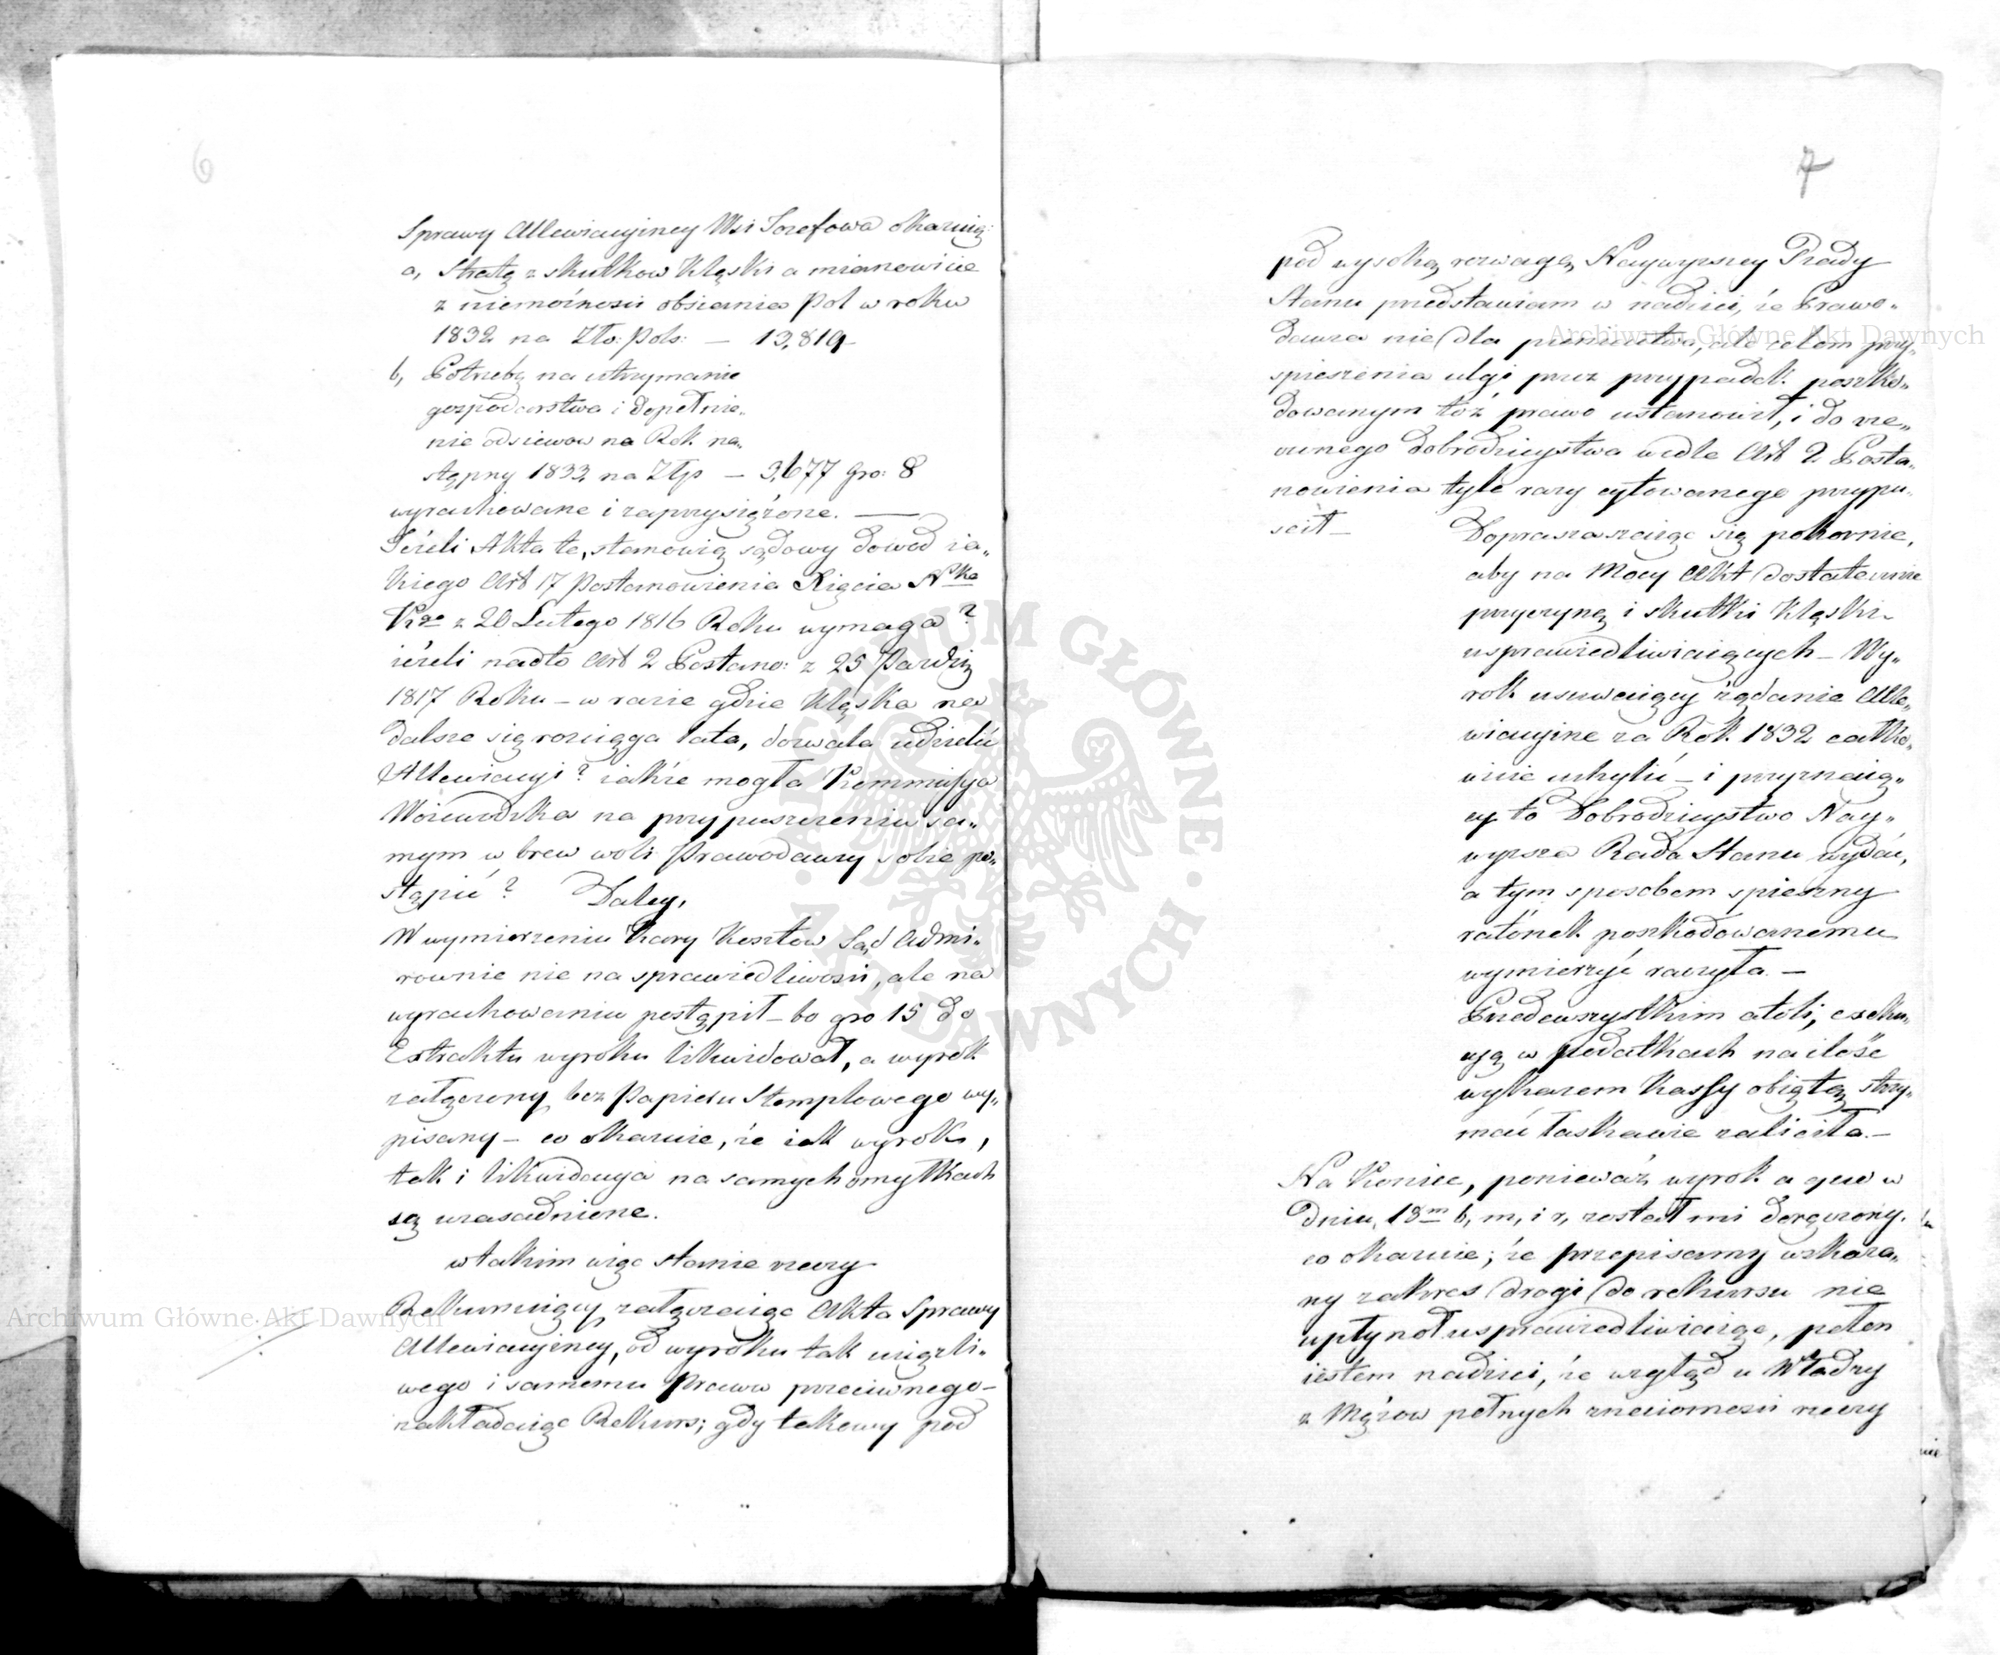 6
Sprawy Allewiacyiney Wsi Jozefowa okazuią:
a, Stratę z skutkow Klęski a mianowicie
z niemożności obsiania Pol w roku
1832 na Zło: Pols: — 13,819
b, Potrzebę na utrzymanie
gospodarstwa i dopełnie„
nie odsiewow na Rok na„
stępny 1833 na Złp — 3,677 gro: 8
wyrachowane i zaprzysiężone. —
Jeżeli Akta te, stanowią sądowy dowod ia„
kiego Art 17 Postanowienia Xięcia Nka
Kgo z 20 Lutego 1816 Roku wymaga?
ieżeli nadto Art 2 Postano: z 25 Paźdź
1817 Roku – w razie gdzie klęska na
dalsze się rozciąga lata, dozwala udzielić
Allewiacyi? iakże mogła Kommissya
Woiewodzka na przypuszczeniu sa„
mym w brew woli Prawodawcy sobie po„
stąpić? Daley,
W wymierzeniu Kary Kosztow Sąd Admi„
rownie nie na sprawiedliwości, ale na
wyrachowaniu postąpił – bo gro 15 do
Extraktu wyroku likwidował, a wyrok
załączony bez Papieru Stemplowego wy„
pisany – co okazuie, że iak wyrok,
tak i likwidacya na samych omyłkach
są uzasadnione.
w takim więc stanie rzeczy
Rekuruiący załączaiąc Akta Sprawy
Allewiacyiney, od wyroku tak uciążli„
wego i samemu Prawu przeciwnego –
zakładaiąc Rekurs; gdy takowy pod
7
pod wysoką rozwagę Naywyższey Rady
Stanu przedstawiam w nadziei, że Prawo„
dawca nie dla pieniactwa, ale celem przy„
spieszenia ulgi przez przypadek poszko„
dowanym toż prawo ustanowił, i do rze„
czonego dobrodzieystwa wedle Art 2. Posta„
nowienia tyle razy cytowanego przypu„
scił –
Dopraszaszaiąc się pokornie,
aby na Mocy Akt dostatecznie
przyczynę i skutki Klęski
usprawiedliwiaiących – Wy„
rok usuwaiący żądanie Alle„
wiacyine za Rok 1832 całko„
wicie uchylić – i przyznaią„
cy to Dobrodzieystwo Nay„
wyższa Rada Stanu wydać,
a tym sposobem spieszny
ratónek poszkodowanemu
wymierzyć raczyła. –
Przedewszystkim atoli, exeku„
cyą w podatkach na ilość
wykazem Kassy obiętą, strzy„
mać łaskawie zaliciła. –
Na Koniec, ponieważ wyrok a quo w
Dniu 18m b, m, i r, został mi doręczony,
co okazuie; że przepisamy wskaza„
ny zakres drogi do rekursu nie
upłynoł usprawiedliwiaiąc, pełen
iestem nadziei, że wzgląd u Władzy
z Mężow pełnych znaiomości rzeczy
Archiwum Główne Akt Dawnych
Archiwum Główne Akt Dawnych
ARCHIWUM GŁÓWNE · AKT DAWNYCH ·